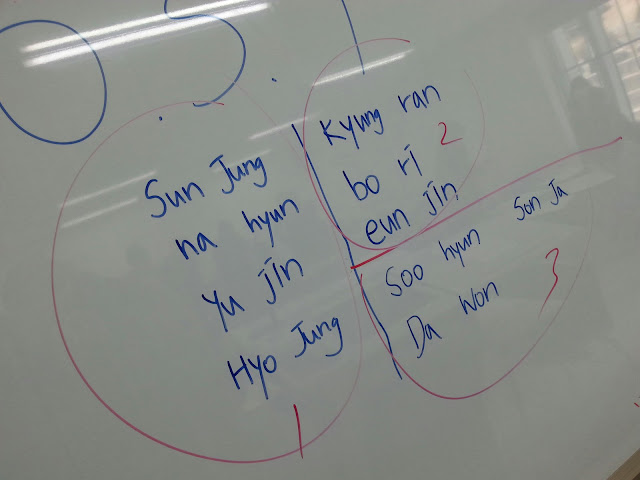 03.1
Sun Jung
na hyun
Yu jin
Hyo Jung
1
Kyung ran
bo ri 2
eun jin
Soo hyun Son Ja
Da Won 3